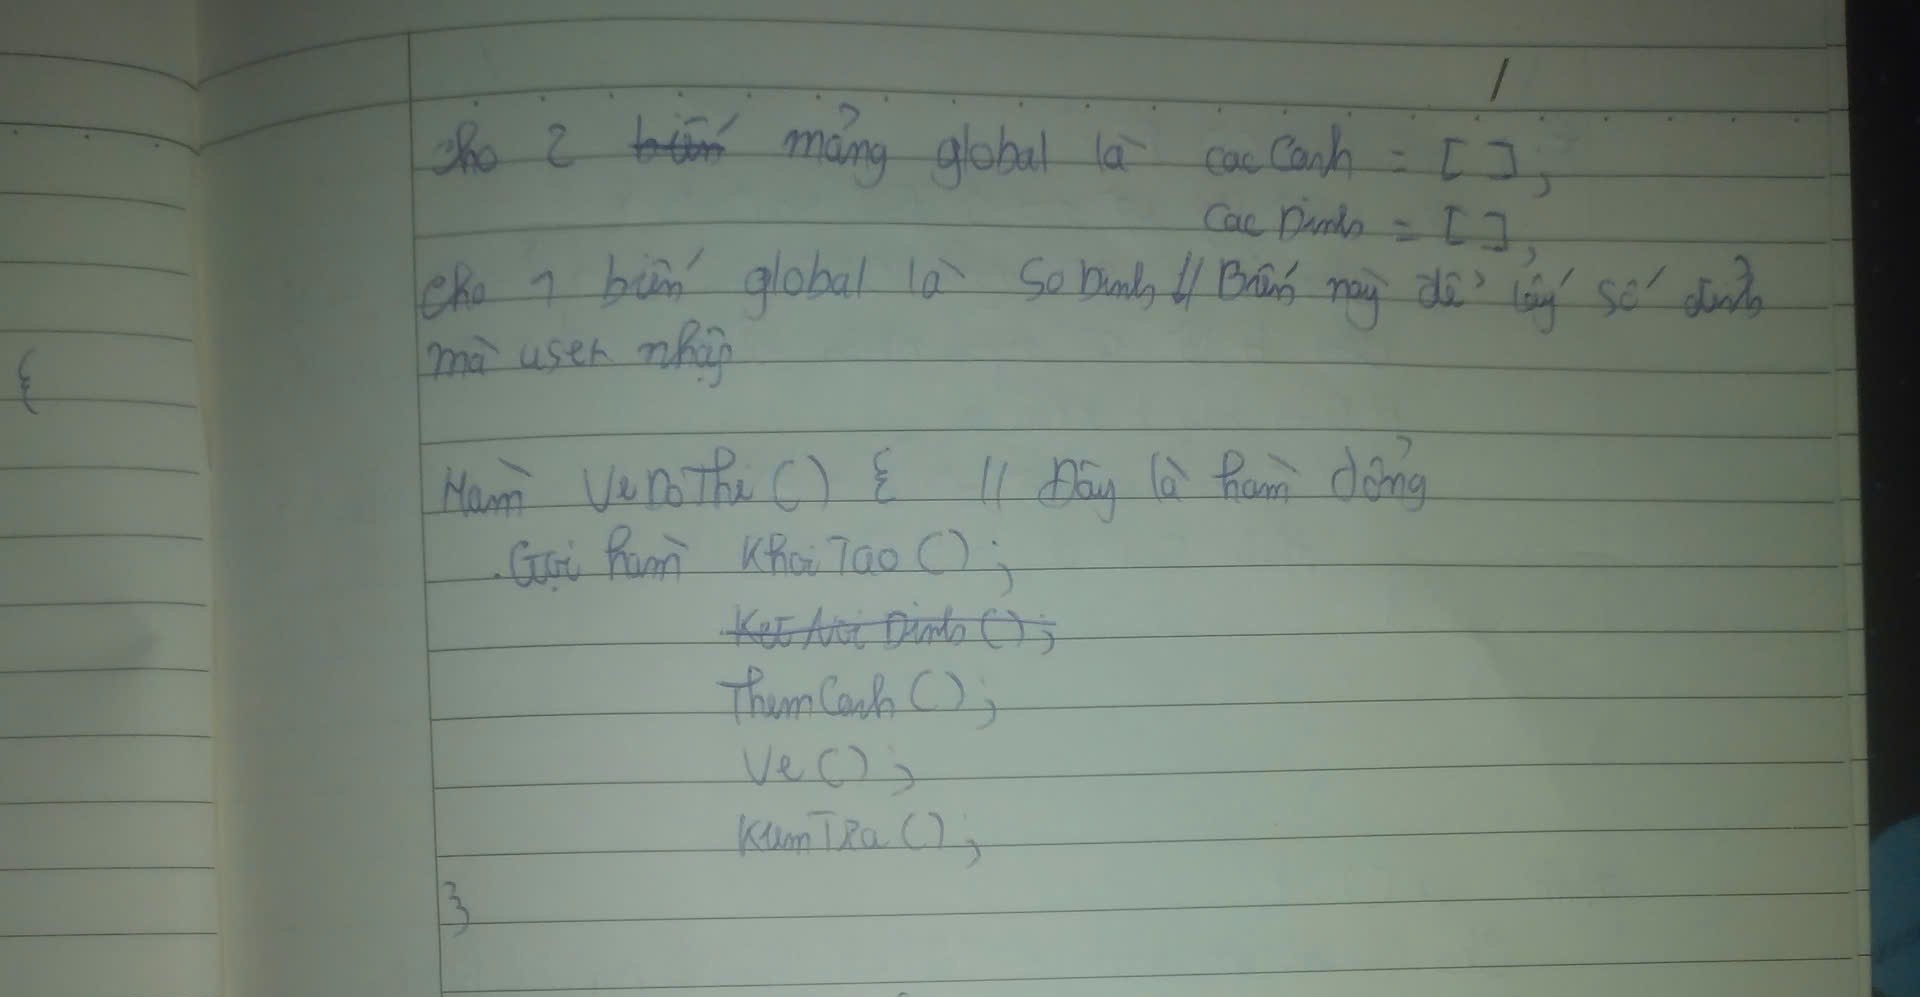 1
cho 2 biến mảng global là cacCanh = [ ];
CacDinh = [ ];
cho 1 biến global là SoDinh // Biến này để lấy số đỉnh
mà user nhập
{
Hàm VeDoThi () { // Đây là hàm động
. Gọi hàm KhoiTao ();
KetNoiDinh ();
ThemCanh ();
Ve ();
KiemTra ();
}